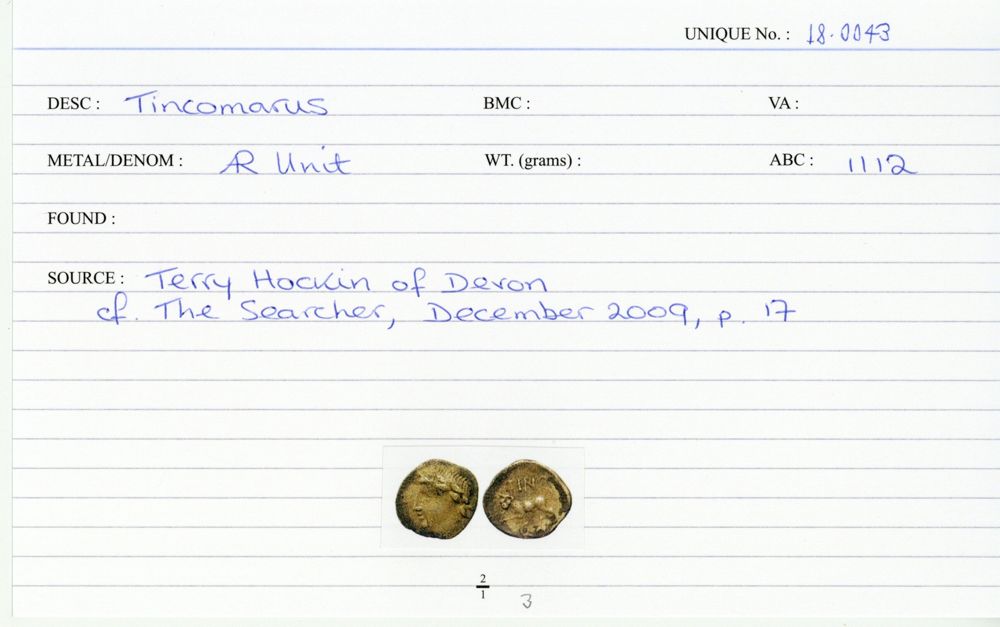 UNIQUE No. : 18.0043
DESC : Tincomarus BMC : VA :
METAL/DENOM : AR Unit WT. (grams) : ABC : 1112
FOUND :
SOURCE : Terry Hockin of Devon
cf. The Searcher, December 2009, p. 17
2
1
3